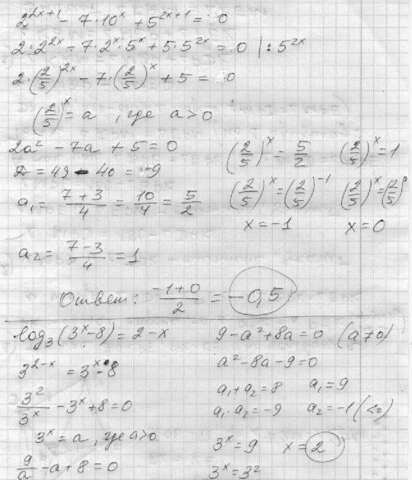 2^{2x+1} - 7·10^x + 5^{2x+1} = 0
2·2^{2x} - 7·2^x·5^x + 5·5^{2x} = 0 |:5^{2x}
2·(2/5)^{2x} - 7·(2/5)^x + 5 = 0
(2/5)^x = a, где a>0
2a² - 7a + 5 = 0
D = 49 - 40 = 9
a₁ = (7+3)/4 = 10/4 = 5/2
a₂ = (7-3)/4 = 1
(2/5)^x = 5/2
(2/5)^x = (2/5)^{-1}
x = -1
(2/5)^x = 1
(2/5)^x = (2/5)^0
x = 0
Ответ: (-1+0)/2 = -0,5
log₃(3^x - 8) = 2 - x
3^{2-x} = 3^x - 8
3²/3^x - 3^x + 8 = 0
3^x = a, где a>0
9/a - a + 8 = 0
9 - a² + 8a = 0 (a≠0)
a² - 8a - 9 = 0
a₁ + a₂ = 8 a₁ = 9
a₁·a₂ = -9 a₂ = -1 (<0)
3^x = 9 x = 2
3^x = 3²